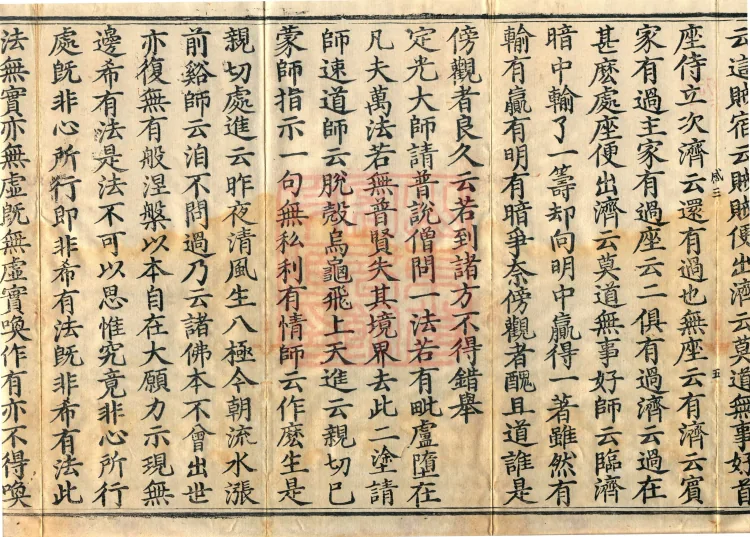 云這賊宿云賊賊便出濟云莫道無事好首
座侍立次濟云還有過也無座云有濟云賓
家有過主家有過座云二俱有過濟云過在
甚麽處座便出濟云莫道無事好師云臨濟
暗中輸了一籌却向明中贏得一著雖然有
輸有贏有明有暗爭奈傍觀者醜且道誰是
傍觀者良久云若到諸方不得錯舉
定光大師請普說僧問一法若有毗盧墮在
凡夫萬法若無普賢失其境界去此二塗請
師速道師云脫殼烏龜飛上天進云親切已
蒙師指示一句無私利有情師云作麽生是
親切處進云昨夜清風生八極今朝流水漲
前谿師云洎不問過乃云諸佛本不會出世
亦復無有般涅槃以本自在大願力示現無
邊希有法是法不可以思惟究竟非心所行
處旣非心所行即非希有法旣非希有法此
法無實亦無虛旣無虛實喚作有亦不得喚